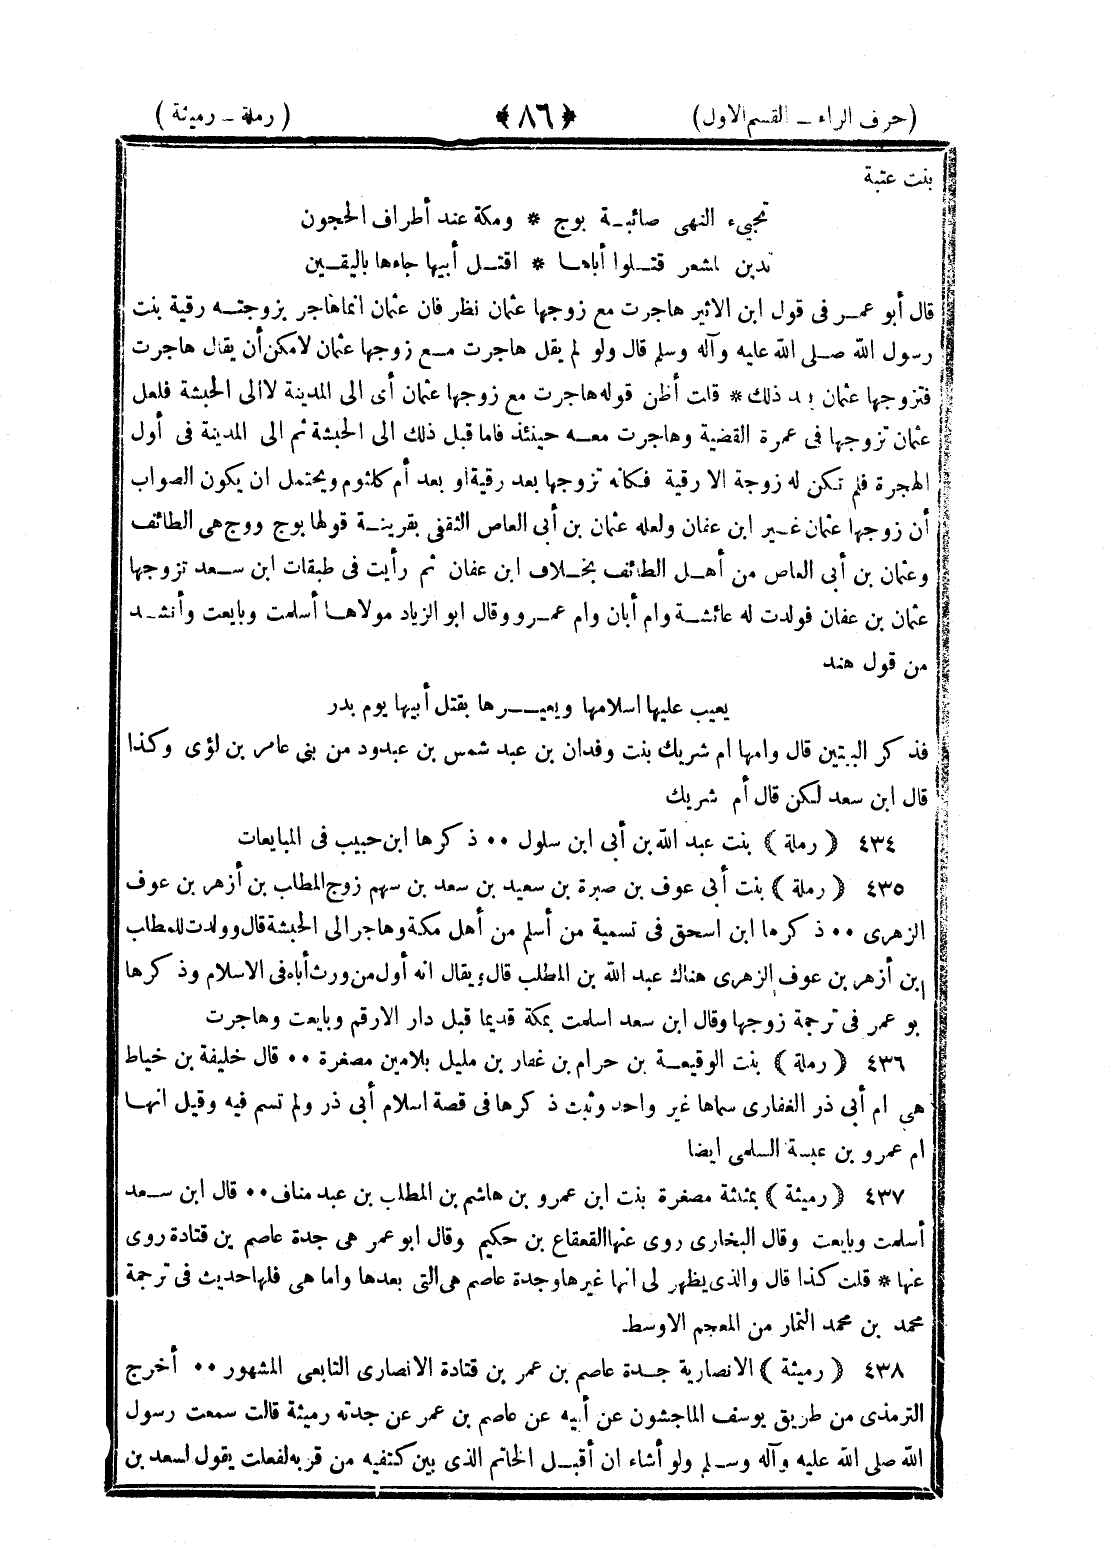 (حرف الراء ـ القسم الاول) ﴿٨٦﴾ (رملة ـ رميثة)
بنت عتبة
تجيء النهى صائبة بوج * ومكة عند أطراف الحجون
تدين لمشعر قتلوا أباها * اقتل أبيها جاءها باليقين
قال أبو عمر فى قول ابن الاثير هاجرت مع زوجها عثمان نظر فان عثمان انما هاجر بزوجته رقية بنت
رسول الله صلى الله عليه وآله وسلم قال ولو لم يقل هاجرت مع زوجها عثمان لامكن أن يقال هاجرت
فتزوجها عثمان بعد ذلك * قلت أظن قوله هاجرت مع زوجها عثمان أى الى المدينة لاالى الحبشة فلعل
عثمان تزوجها فى عمرة القضية وهاجرت معه حينئذ فاما قبل ذلك الى الحبشة ثم الى المدينة فى أول
الهجرة فلم تكن له زوجة الا رقية فكانه تزوجها بعد رقية او بعد أم كلثوم ويحتمل ان يكون الصواب
أن زوجها عثمان غير ابن عفان ولعله عثمان بن أبى العاص الثقفى بقرينة قولها بوج ووج هى الطائف
وعثمان بن أبى العاص من أهل الطائف بخلاف ابن عفان ثم رأيت فى طبقات ابن سعد تزوجها
عثمان بن عفان فولدت له عائشة وام أبان وام عمرو وقال ابو الزياد مولاها أسلمت وبايعت وأنشد
من قول هند
يعيب عليها اسلامها ويعيرها بقتل أبيها يوم بدر
فذكر البيتين قال وامها ام شريك بنت وفدان بن عبد شمس بن عبدود من بنى عامر بن لؤى وكذا
قال ابن سعد لكن قال أم شريك
٤٣٤ (رملة) بنت عبد الله بن أبى ابن سلول ٠٠ ذكرها ابن حبيب فى المبايعات
٤٣٥ (رملة) بنت أبى عوف بن صبرة بن سعيد بن سعد بن سهم زوج المطلب بن أزهر بن عوف
الزهرى ٠٠ ذكرها ابن اسحق فى تسمية من أسلم من أهل مكة وهاجر الى الحبشة قال وولدت للمطلب
ابن أزهر بن عوف الزهرى هناك عبد الله بن المطلب قال ويقال انه أول من ورث أباه فى الاسلام وذكرها
بو عمر فى ترجمة زوجها وقال ابن سعد اسلمت بمكة قديما قبل دار الارقم وبايعت وهاجرت
٤٣٦ (رملة) بنت الوقيعة بن حرام بن غفار بن مليل بلامين مصغرة ٠٠ قال خليفة بن خياط
هى ام أبى ذر الغفارى سماها غير واحد وثبت ذكرها فى قصة اسلام أبى ذر ولم تسم فيه وقيل انها
ام عمرو بن عبسة السلمى ايضا
٤٣٧ (رميثة) بمثلثة مصغرة بنت ابن عمرو بن هاشم بن المطلب بن عبد مناف ٠٠ قال ابن سعد
أسلمت وبايعت وقال البخارى روى عنها القعقاع بن حكيم وقال ابو عمر هى جدة عاصم بن قتادة روى
عنها * قلت كذا قال والذى يظهر لى انها غيرها وجدة عاصم هى التى بعدها واما هى فلها حديث فى ترجمة
محمد بن محمد التمار من المعجم الاوسط
٤٣٨ (رميثة) الانصارية جدة عاصم بن عمر بن قتادة الانصارى التابعى المشهور ٠٠ أخرج
الترمذى من طريق يوسف الماجشون عن أبيه عن عاصم بن عمر عن جدته رميثة قالت سمعت رسول
الله صلى الله عليه وآله وسلم ولو أشاء ان أقبل الخاتم الذى بين كتفيه من قربه لفعلت يقول لسعد بن